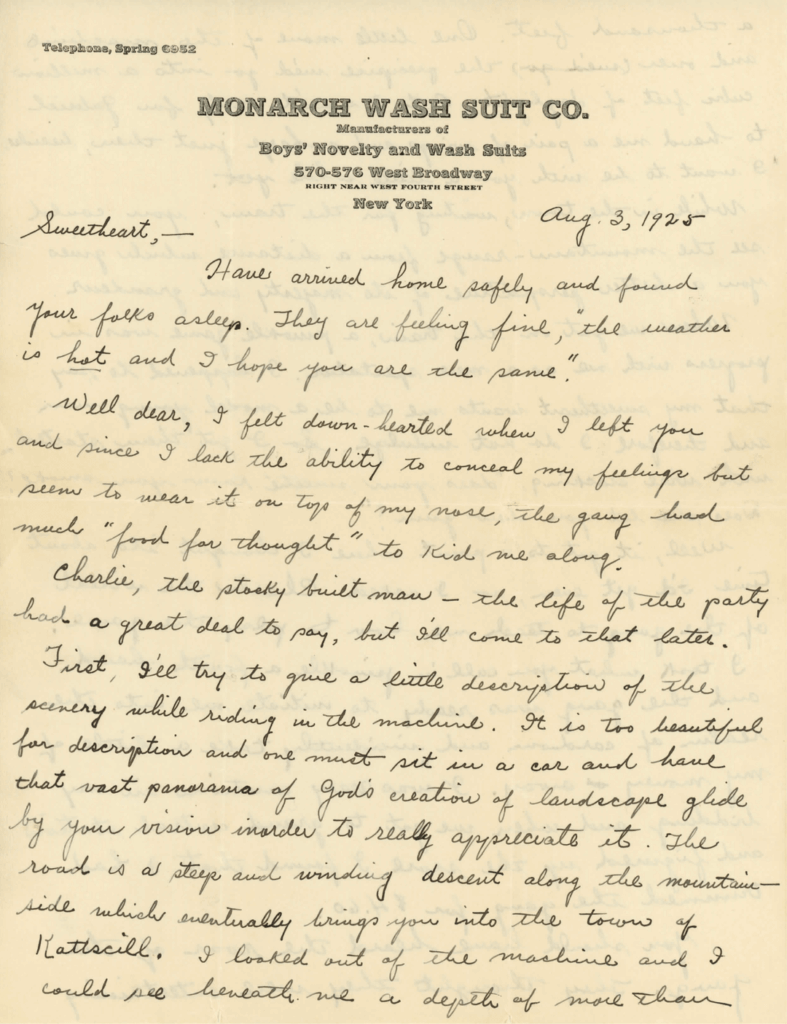 Telephone, Spring 6952
MONARCH WASH SUIT CO.
Manufacturers of
Boys' Novelty and Wash Suits
570-576 West Broadway
RIGHT NEAR WEST FOURTH STREET
New York
Aug. 3, 1925
Sweetheart,—
Have arrived home safely and found
your folks asleep. They are feeling fine, "the weather
is hot and I hope you are the same".
Well dear, I felt down-hearted when I left you
and since I lack the ability to conceal my feelings but
seem to wear it on top of my nose, the gang had
much "food for thought" to kid me along.
Charlie, the stocky built man – the life of the party
had a great deal to say, but I'll come to that later.
First, I'll try to give a little description of the
scenery while riding in the machine. It is too beautiful
for description and one must sit in a car and have
that vast panorama of God's creation of landscape glide
by your vision inorder to really appreciate it. The
road is a steep and winding descent along the mountain–
side which eventually brings you into the town of
Kattscill. I looked out of the machine and I
could see beneath me a depth of more than